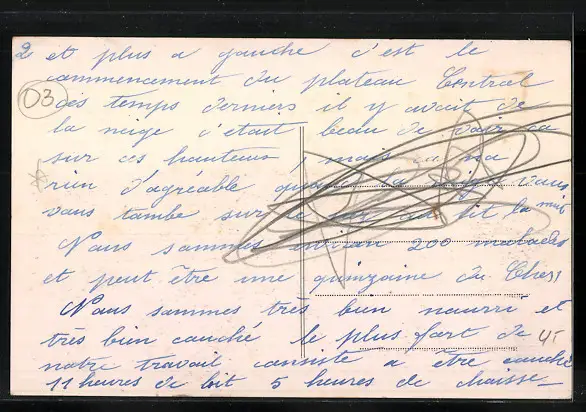 2 et plus a gauche c'est le
commencement du plateau Central
03 des temps derniers il y avait de
la neige c'était beau de voir ca
sur ces hauteurs, mais ça n'a
rien d'agréable quand la neige vous
vous tombe sur le nez au lit la nuit
Nous sommes environ 200 malades
et peut être une quinzaine du Cher
Nous sommes très bien nourri et
très bien couché le plus fort de
notre travail consiste a être couché
11 heures de lit 5 heures de chaisse
45